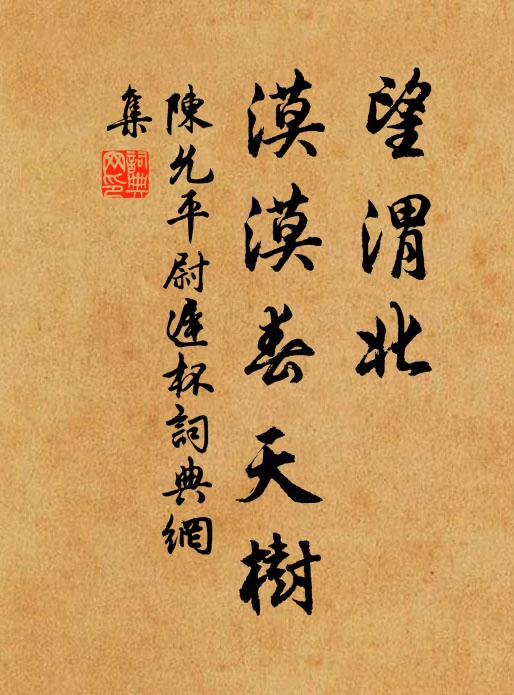 望渭北
漠漠春天樹
陳允平尉遲杯詞典網
集
詞典
网印